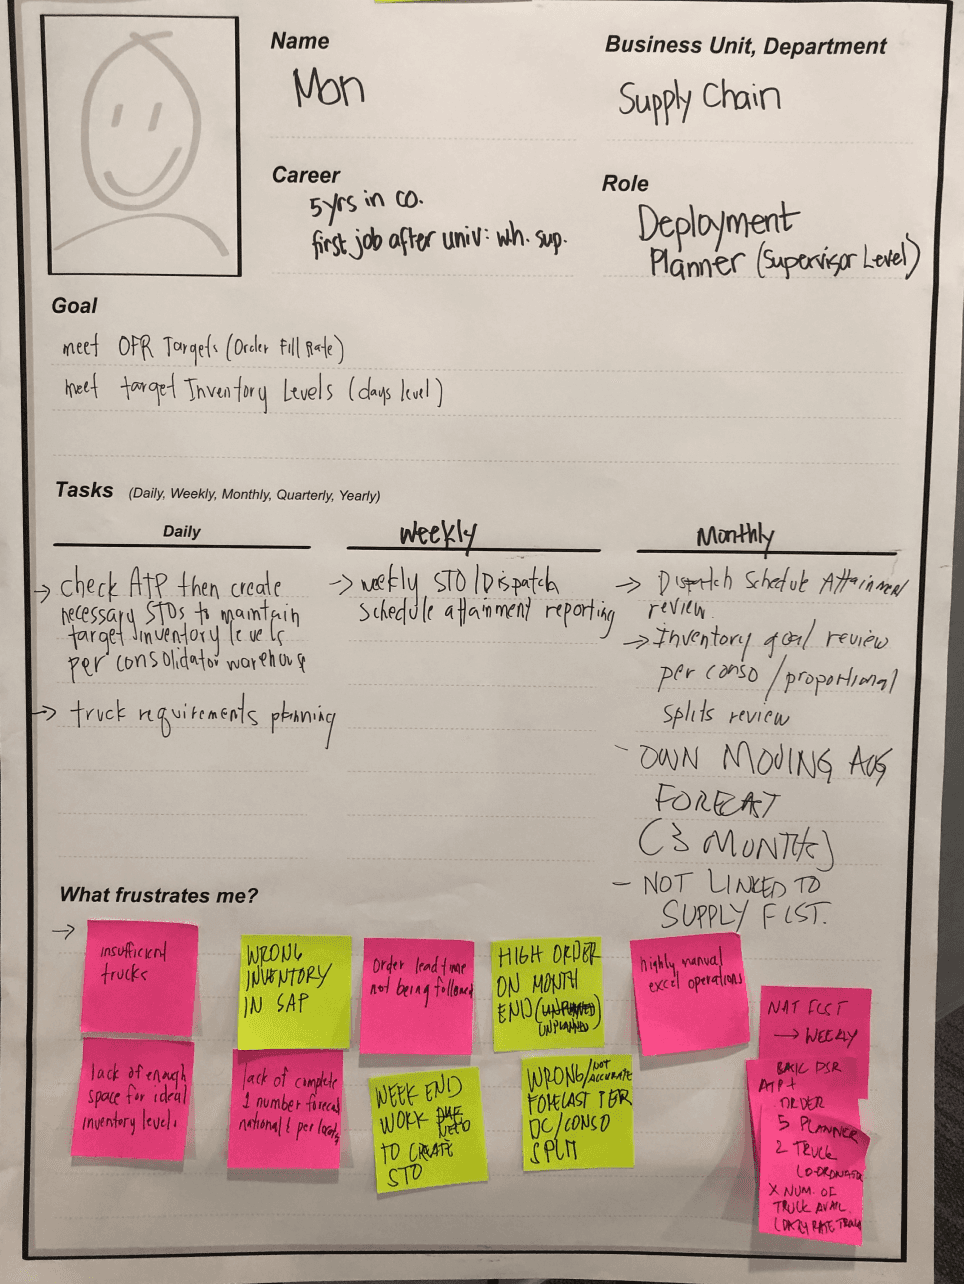 Name
Mon
Business Unit, Department
Supply Chain
Career
5yrs in co.
first job after univ: wh. sup.
Role
Deployment
Planner (Supervisor Level)
Goal
meet OFR Targets (Order Fill Rate)
meet target Inventory Levels (days level)
Tasks (Daily, Weekly, Monthly, Quarterly, Yearly)
Daily
→ check ATP then create
necessary STOs to maintain
target inventory levels
per consolidator warehouse
→ truck requirements planning
Weekly
→ weekly STO/Dispatch
schedule attainment reporting
Monthly
→ Dispatch Schedule Attainment
review
→ Inventory goal review
per conso/proportional
splits review
- OWN MOVING AVG
FORECAST
(3 MONTHS)
- NOT LINKED TO
SUPPLY FCST.
What frustrates me?
→
insufficient
trucks
WRONG
INVENTORY
IN SAP
Order leadtime
not being followed
HIGH ORDER
ON MONTH
END (UNPLANNED)
highly manual
excel operations
NAT FCST
→ WEEKLY
lack of enough
space for ideal
inventory levels
lack of complete
1 number forecast
national & per
WEEK END
WORK NEED
TO CREATE
STO
WRONG/NOT ACCURATE
FORECAST PER
DC/CONSO
SPLIT
BASIC DSR
ATP +
ORDER
5 PLANNER
2 TRUCK
CO-ORDINATOR
X NUM. OF
TRUCK AVAIL.